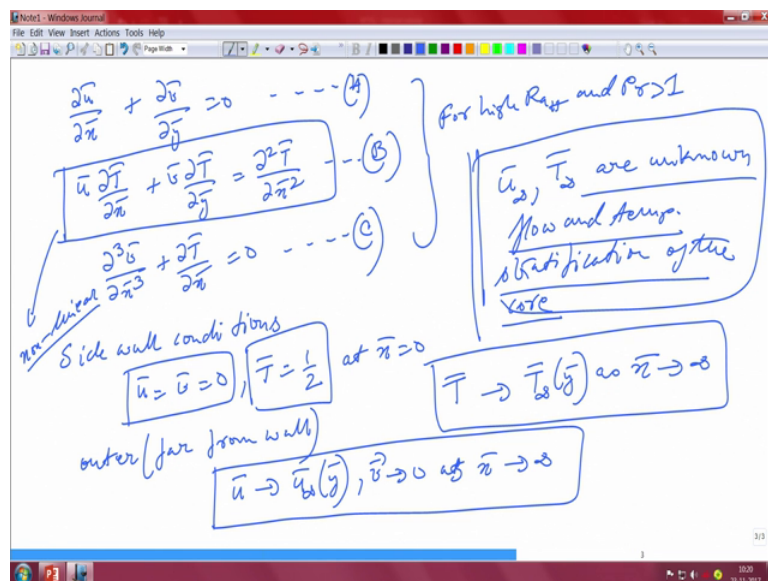 Note1 - Windows Journal
File Edit View Insert Actions Tools Help
Page Width
∂ū/∂x̄ + ∂v̄/∂ȳ = 0 ----- (A)
ū ∂T̄/∂x̄ + v̄ ∂T̄/∂ȳ = ∂²T̄/∂x̄² --- (B)
∂³v̄/∂x̄³ + ∂T̄/∂x̄ = 0 ----- (C)
For high Ra_H and Pr>1
ū∞, T̄∞ are unknown
flow and temp.
stratification of the
core
non-linear
Side wall conditions
ū = v̄ = 0, T̄ = 1/2 at x̄ = 0
T̄ → T̄∞(ȳ) as x̄ → ∞
outer (far from wall)
ū → ū∞(ȳ), v̄ → 0 as x̄ → ∞
3/3
3
10:20